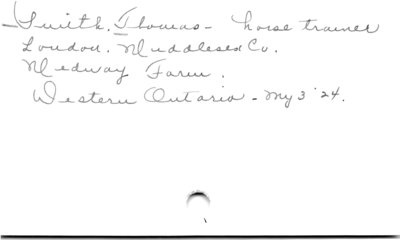 Smith, Thomas - horse trainer
London. Middlesex Co.
Medway Farm.
Western Ontario - My 3 '24.